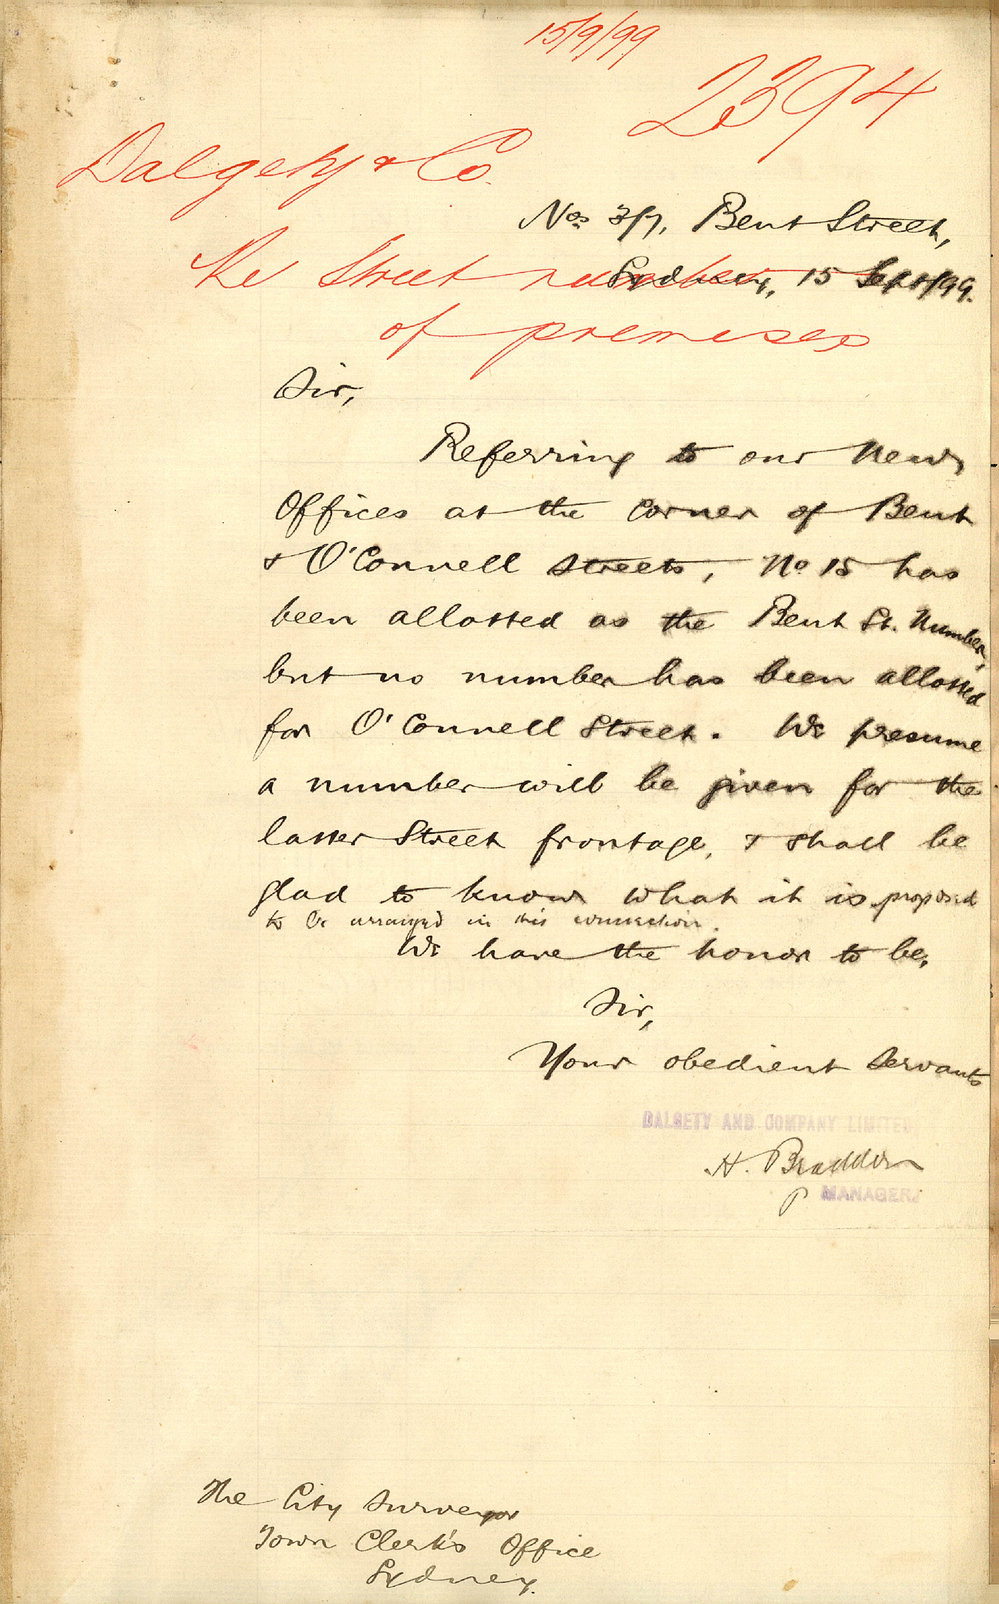 15/9/99
2394
Dalgety & Co.
Nos 3/7, Bent Street,
Sydney, 15 Sept/99.
Re Street number
of premises
Sir,
Referring to our New
Offices at the corner of Bent
& O'Connell Streets, No 15 has
been allotted as the Bent St. Number,
but no number has been allotted
for O'Connell Street. We presume
a number will be given for the
latter Street frontage, & shall be
glad to know what it is proposed
to be arranged in this connection.
We have the honor to be,
Sir,
Your obedient Servants
DALGETY AND COMPANY LIMITED
H. Braddon
P MANAGER.
The City Surveyor
Town Clerk's Office
Sydney.